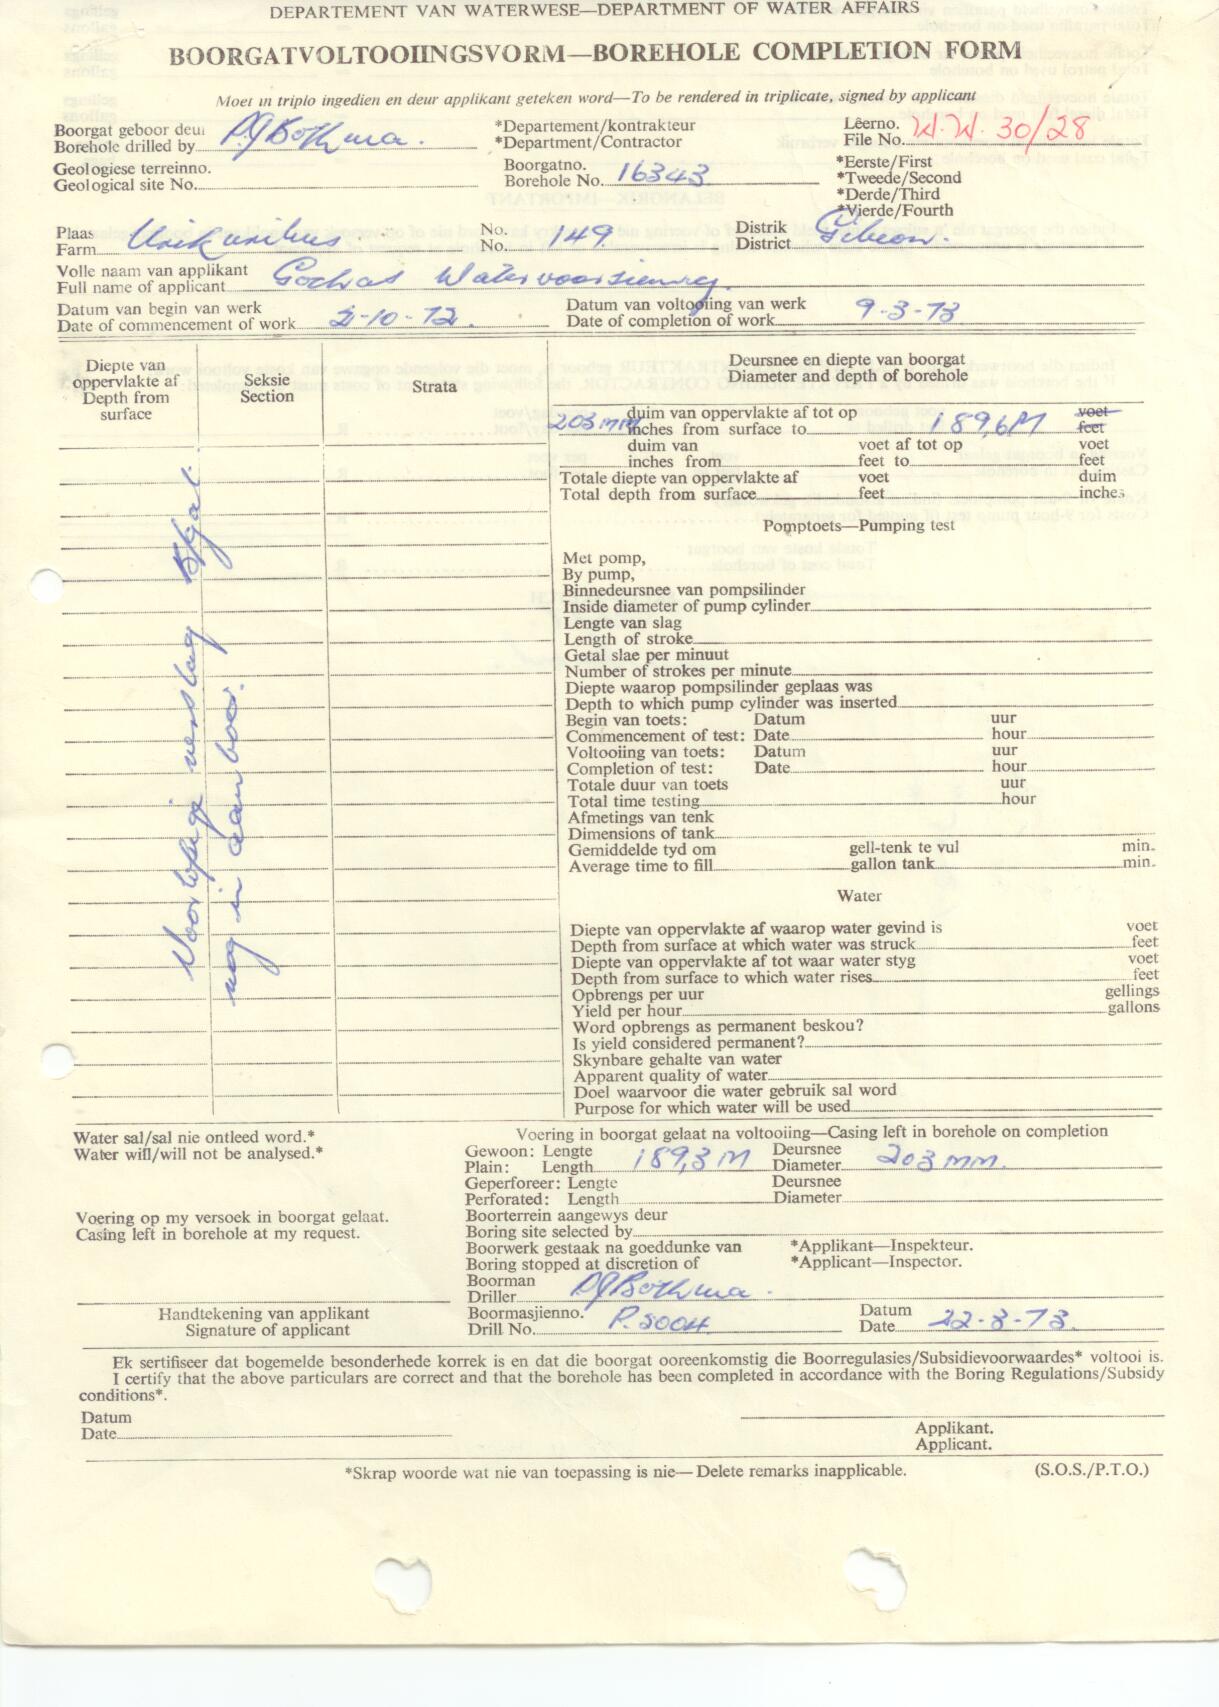 DEPARTEMENT VAN WATERWESE—DEPARTMENT OF WATER AFFAIRS
BOORGATVOLTOOIINGSVORM—BOREHOLE COMPLETION FORM
Moet in triplo ingedien en deur applikant geteken word—To be rendered in triplicate, signed by applicant
Boorgat geboor deur
Borehole drilled by PJ Bothma.
*Departement/kontrakteur
*Department/Contractor
Lêerno.
File No. W.W. 30/28
Geologiese terreinno.
Geological site No.
Boorgatno.
Borehole No. 16343
*Eerste/First
*Tweede/Second
*Derde/Third
*Vierde/Fourth
Plaas
Farm
No.
No. 149
Distrik
District Gibeon.
Volle naam van applikant
Full name of applicant Gochas Watervoorsiening.
Datum van begin van werk
Date of commencement of work 2-10-72.
Datum van voltooiing van werk
Date of completion of work 9-3-73
Diepte van oppervlakte af
Depth from surface
Seksie
Section
Strata
Voorlopige verslag Btgat.
nog in aanboor.
Deursnee en diepte van boorgat
Diameter and depth of borehole
203 mm duim van oppervlakte af tot op voet
inches from surface to 189,6 M feet
duim van voet af tot op voet
inches from feet to feet
Totale diepte van oppervlakte af voet duim
Total depth from surface feet inches
Pomptoets—Pumping test
Met pomp,
By pump,
Binnedeursnee van pompsilinder
Inside diameter of pump cylinder
Lengte van slag
Length of stroke
Getal slae per minuut
Number of strokes per minute
Diepte waarop pompsilinder geplaas was
Depth to which pump cylinder was inserted
Begin van toets: Datum uur
Commencement of test: Date hour
Voltooiing van toets: Datum uur
Completion of test: Date hour
Totale duur van toets uur
Total time testing hour
Afmetings van tenk
Dimensions of tank
Gemiddelde tyd om gell-tenk te vul min.
Average time to fill gallon tank min.
Water
Diepte van oppervlakte af waarop water gevind is voet
Depth from surface at which water was struck feet
Diepte van oppervlakte af tot waar water styg voet
Depth from surface to which water rises feet
Opbrengs per uur gellings
Yield per hour gallons
Word opbrengs as permanent beskou?
Is yield considered permanent?
Skynbare gehalte van water
Apparent quality of water
Doel waarvoor die water gebruik sal word
Purpose for which water will be used
Water sal/sal nie ontleed word.*
Water will/will not be analysed.*
Voering in boorgat gelaat na voltooiing—Casing left in borehole on completion
Gewoon: Lengte Deursnee
Plain: Length 189,3 M Diameter 203 mm.
Geperforeer: Lengte Deursnee
Perforated: Length Diameter
Voering op my versoek in boorgat gelaat.
Casing left in borehole at my request.
Boorterrein aangewys deur
Boring site selected by
Boorwerk gestaak na goeddunke van *Applikant—Inspekteur.
Boring stopped at discretion of *Applicant—Inspector.
Boorman
Driller PJ Bothma.
Handtekening van applikant
Signature of applicant
Boormasjienno.
Drill No. P.3004.
Datum
Date 22-3-73.
Ek sertifiseer dat bogemelde besonderhede korrek is en dat die boorgat ooreenkomstig die Boorregulasies/Subsidievoorwaardes* voltooi is.
I certify that the above particulars are correct and that the borehole has been completed in accordance with the Boring Regulations/Subsidy
conditions*.
Datum
Date
Applikant.
Applicant.
*Skrap woorde wat nie van toepassing is nie—Delete remarks inapplicable.
(S.O.S./P.T.O.)